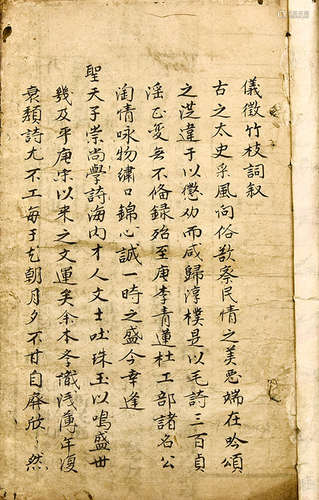 儀徵竹枝詞叙
古之太史采風问俗欲察民情之美惡端在吟頌
之従違于以懲劝而咸歸淳樸是以毛詩三百貞
滛正变無不俻録殆至唐李青蓮杜工部諸名公
淘情咏物繡口錦心誠一時之盛今幸逢
聖天子崇尚學詩海内才人文士吐珠玉以鳴盛世
幾及乎唐宋以来之文運矣余本冬識浅薄年復
衰頽詩尤不工每于花朝月夕不甘自屏欣欣然